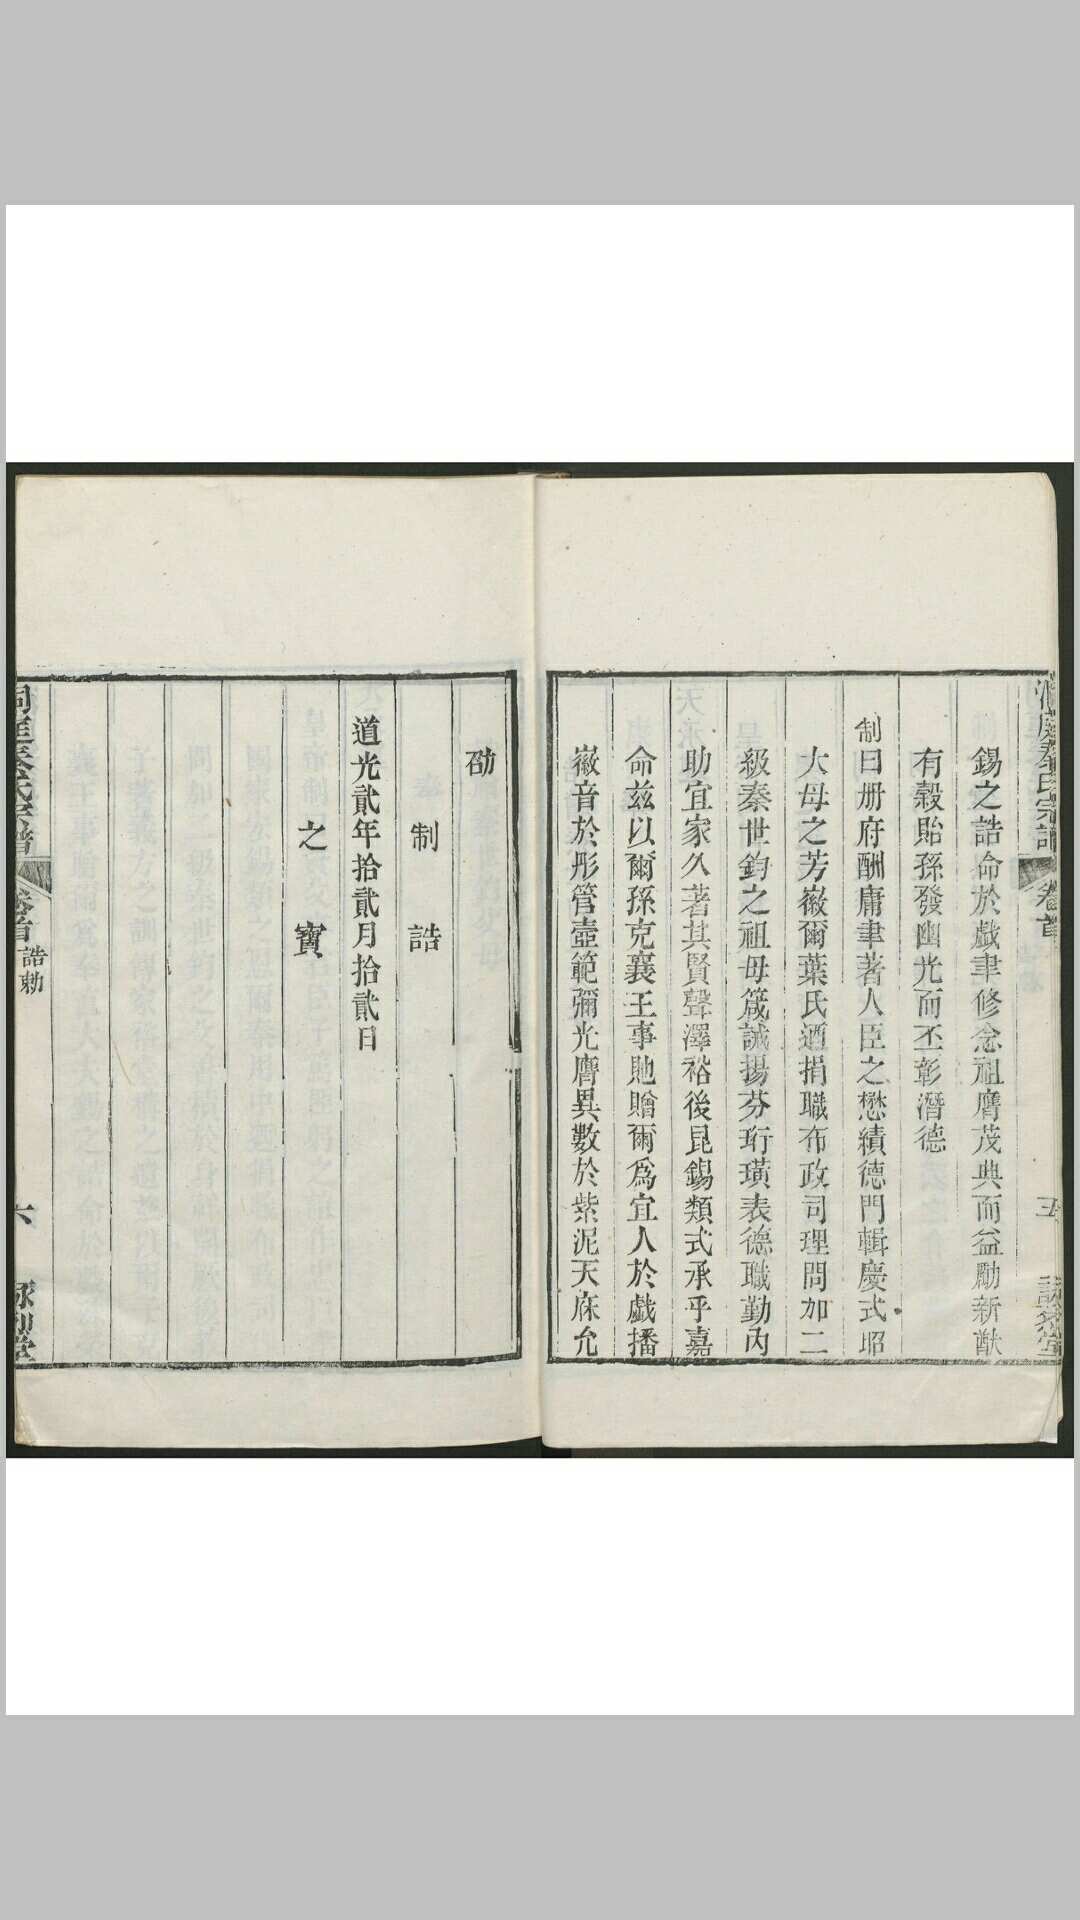 洞庭秦氏宗譜
卷首
五
詠烈堂
錫之誥命於戲聿修念祖膺茂典而益勵新猷
有穀貽孫發幽光而丕彰潛德
制曰册府酬庸聿著人臣之懋績德門輯慶式昭
大母之芳徽爾葉氏迺捐職布政司理問加二
級秦世鈞之祖母箴誡揚芬珩璜表德職勤內
助宜家久著其賢聲澤裕後昆錫類式承乎嘉
命兹以爾孫克襄王事貤贈爾爲宜人於戲播
徽音於彤管壼範彌光膺異數於紫泥天庥允
劭
制誥
道光貳年拾貳月拾貳日
之寶
洞庭秦氏宗譜
卷首
誥勅
六
詠烈堂